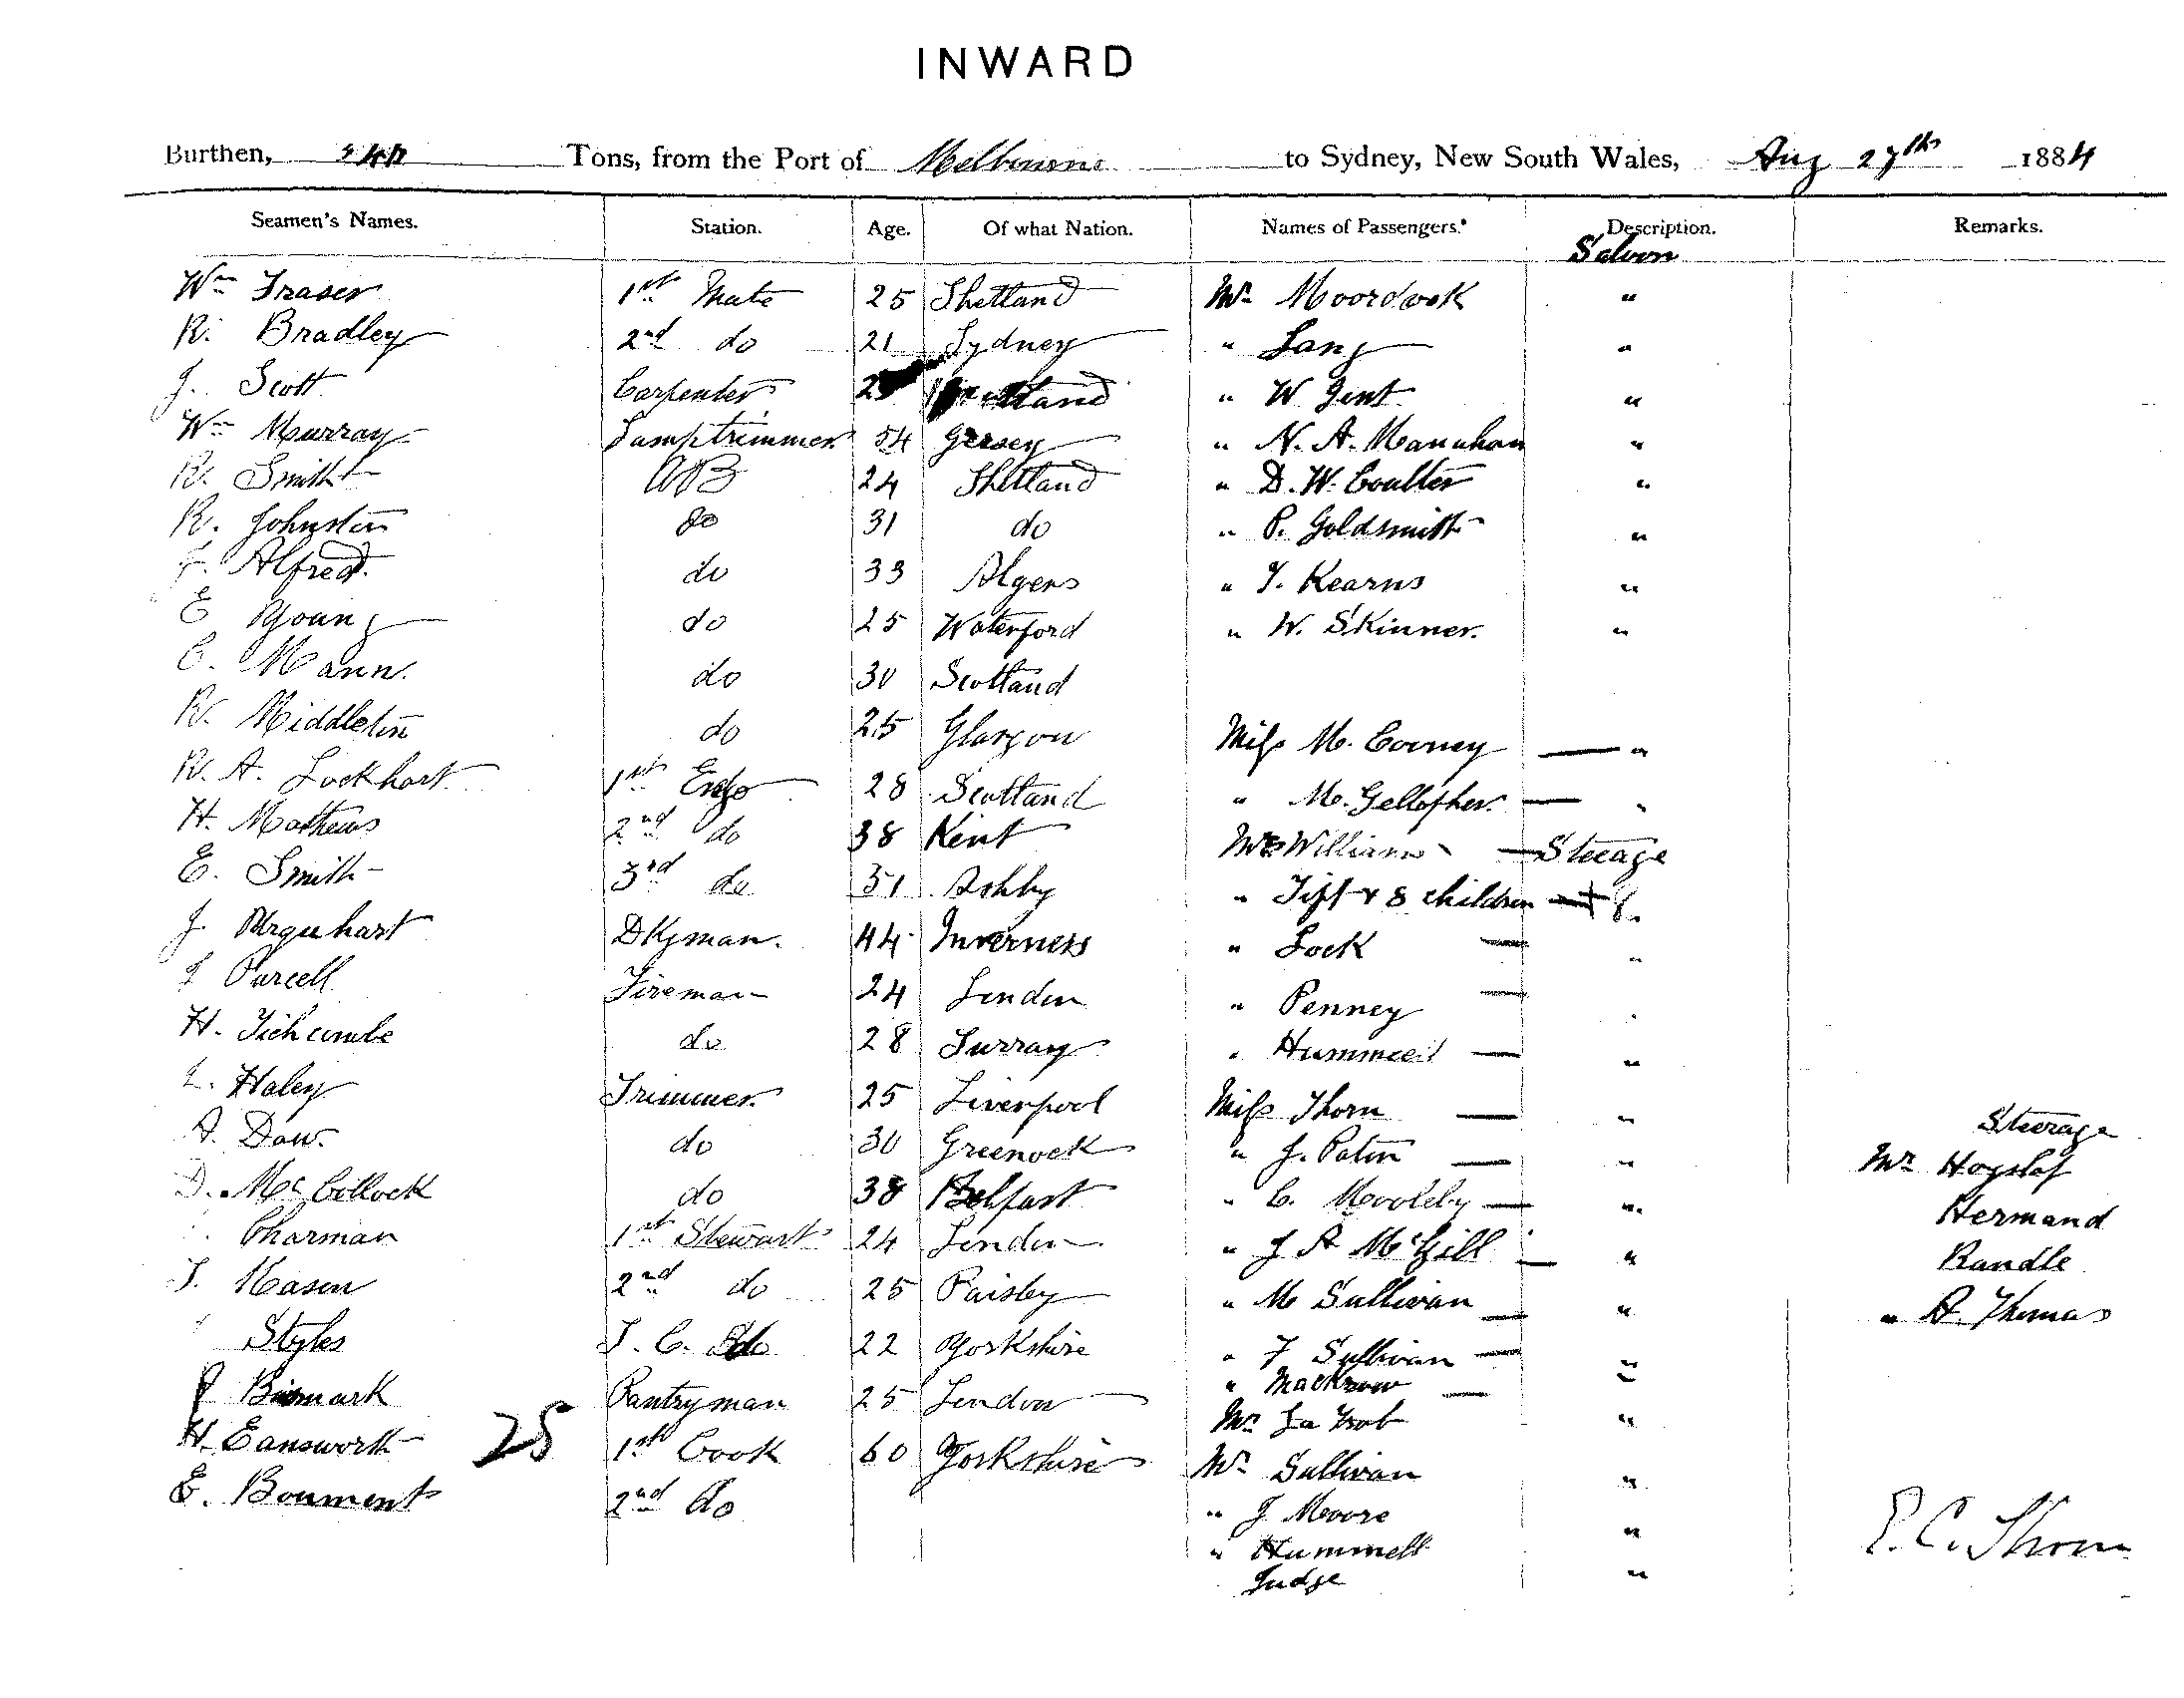 INWARD
Burthen, 540 Tons, from the Port of Melbourne to Sydney, New South Wales, Aug 27th 1884
Seamen's Names. Station. Age. Of what Nation. Names of Passengers.* Description. Remarks.
Saloon
Wm Fraser 1st Mate 25 Shetland Mr Moordock "
R. Bradley 2nd do 21 Sydney " Lang "
J. Scott Carpenter " W Gent "
Wm Murray Lamptrimmer 54 Jersey " N. A. Manuhan "
R. Smith AB 24 Shetland " D. W. Coulter "
R. Johnston do 31 do " P. Goldsmith "
Alfred. do 33 Algers " T. Kearns "
E Young do 25 Waterford " W. Skinner. "
C. Mann. do 30 Scotland
R. Middleton do 25 Glasgow Miss M. Cooney — "
R. A. Lockhart 1st Engr 28 Scotland " M. Gellopher. — "
H. Mathews 2nd do 38 Kent Mrs Williams — Steeage
E. Smith 3rd do 31 Ashby " Tift & 8 children — 8.
J. Urquhart DKyman. 44 Inverness " Lock — "
Purcell Fireman 24 London " Penney — "
H. Tichcombe do 28 Surray " —  "
L. Haley Trimmer 25 Liverpool Miss Thorn — "
A. Daw. do 30 Greenock " J. Paton — " Steerage
D. McCollock do 38 Belfast " C. — " Mr Hoyslof
Charman 1st Stewart 24 London " J A McGill — " Hermand
T. Mason 2nd do 25 Paisley " M Sullivan — " Randle
Styles S. C. do 22 Yorkshire " F Sullivan — " " A Thomas
Bismark Pantryman 25 London " Mackrow — "
H. Eansworth 25 1st Cook 60 Yorkshire Mr La Trob "
E. Boument 2nd do Mr Sullivan "
" J Moore "
" Hummell "
Judge "
P. C. Thom